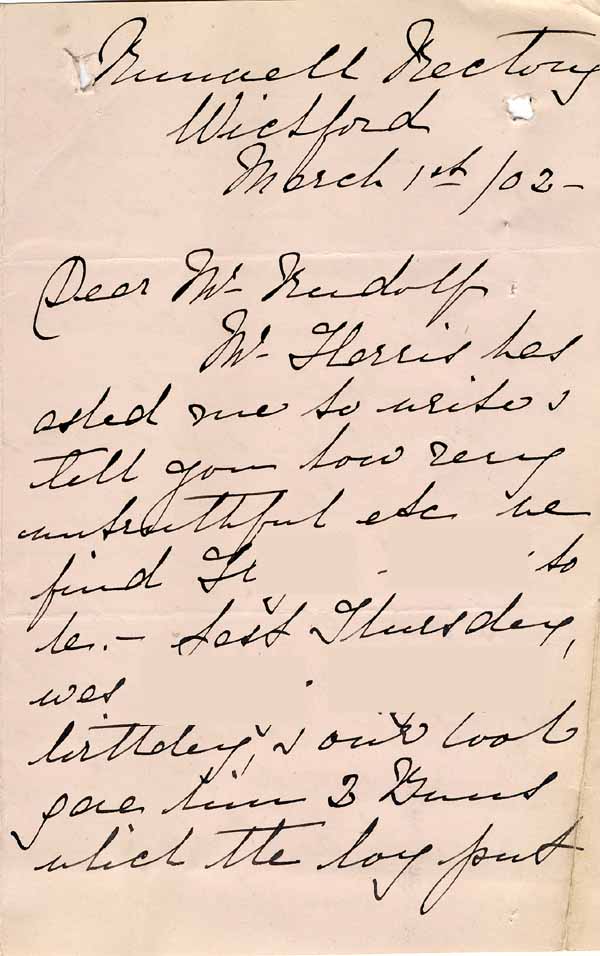 Runwell Rectory
Wickford
March 1st /02 -
Dear Mr Rudolf
Mr Harris has
asked me to write &
tell you how very
untruthful etc we
find to
be. - Last Thursday,
was
birthday, & our cook
gave him 3 Buns
which the boy put